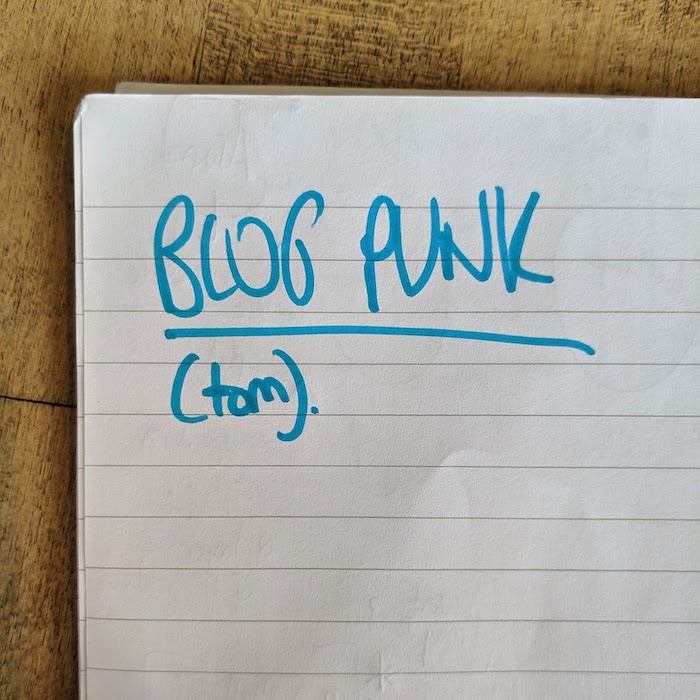 BLOG PUNK
(tom).